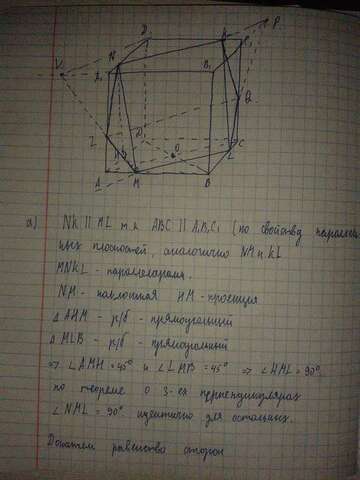 D₁
P
N
K
C₁
V
A₁
B₁
Q
Z
D
O
H
C
L
A
M
B
а) NK || ML т.к ABC || A₁B₁C₁ (по свойству
ных плоскостей, аналогично NM и KL
MNKL - параллелограмм.
NM - наклонная HM - проекция
△ AHM - р/б - прямоугольный
△ MLB - р/б - прямоугольный
=> ∠AMH = 45° и ∠LMB = 45° => ∠HML = 90°
по теореме о 3-ех перпендикулярах
∠NML = 90° идентично для остальных.
Докажем равенство сторон